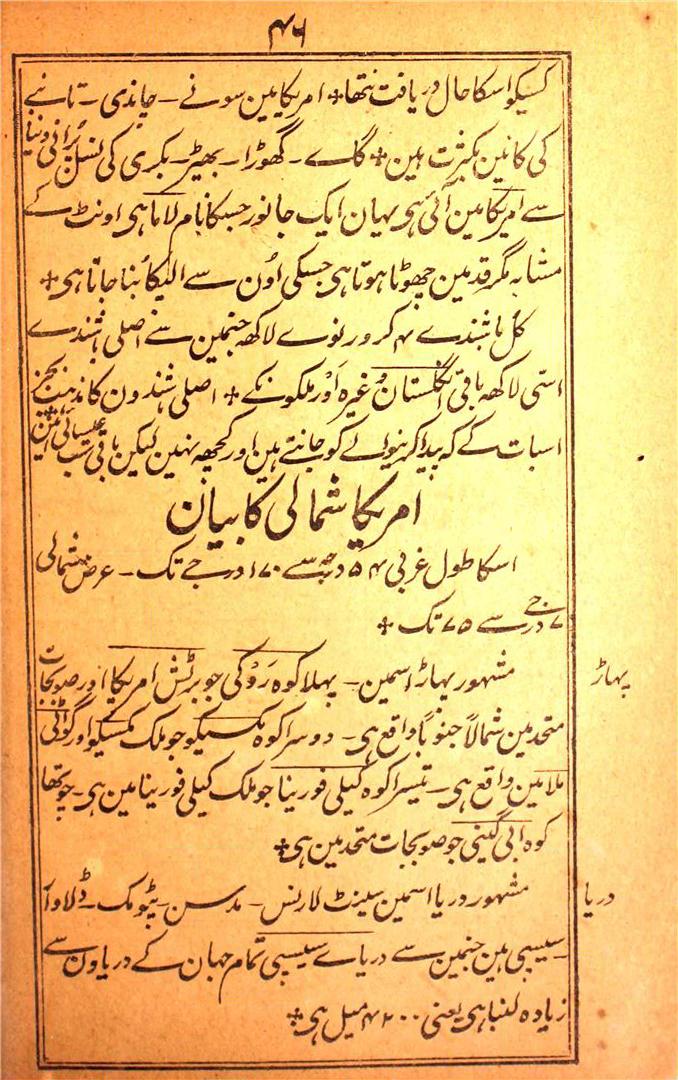 ۴۶
کسیکو اسکا حال دریافت نتھا + امریکا مین سونے ۔ چاندی ۔ تانبے
کی کانین بکثرت ہین + گاے ۔ گھوڑا ۔ بھیڑ ۔ بکری کی نسل پُرانی دنیا
سے امریکا مین آئی ہی یہان ایک جانور جسکا نام لاما ہی اونٹ کے
مشابہ مگر قد مین چھوٹا ہوتا ہی جسکی اُون سے الپکا بُنا جاتا ہی +
کل باشندے ۴ کرور نوے لاکھ جنمین سے اصلی باشندے
اسّی لاکھ باقی انگلستان وغیرہ اَوْر ملکونکے + اصلی باشندون کا مذہب بجز
اسبات کے کہ پیدا کرنیوالے کو جانتے ہین اور کچھ نہین لیکن باقی سب عیسائی ہین +
امریکا شمالی کا بیان
اسکا طول غربی ۵۴ درجے سے ۱۷۰ درجے تک ۔ عرض شمالی
۷ درجے سے ۷۵ تک +
پہاڑ
مشہور پہاڑ اسمین ۔ پہلا کوہ رَوْکی جو برٹش امریکا اور صوبجات
متحد مین شمالاً جنوباً واقع ہی ۔ دوسرا کوہ مکسیکو جو ملک مکسیکو اور گواٹی
ملا مین واقع ہی ۔ تیسرا کوہ کیلی فورینا جو ملک کیلی فورینا مین ہی ۔ چوتھا
کوہ اپی گینی جو صوبجات متحد مین ہی +
دریا
مشہور دریا اسمین سینٹ لارنس ۔ ہدسن ۔ پٹومک ۔ ڈلاوآ
سیسپی ہین جنمین سے دریاے سیسپی تمام جہان کے دریاون سے
زیادہ لنبا ہی یعنی ۴۲۰۰ میل ہی +